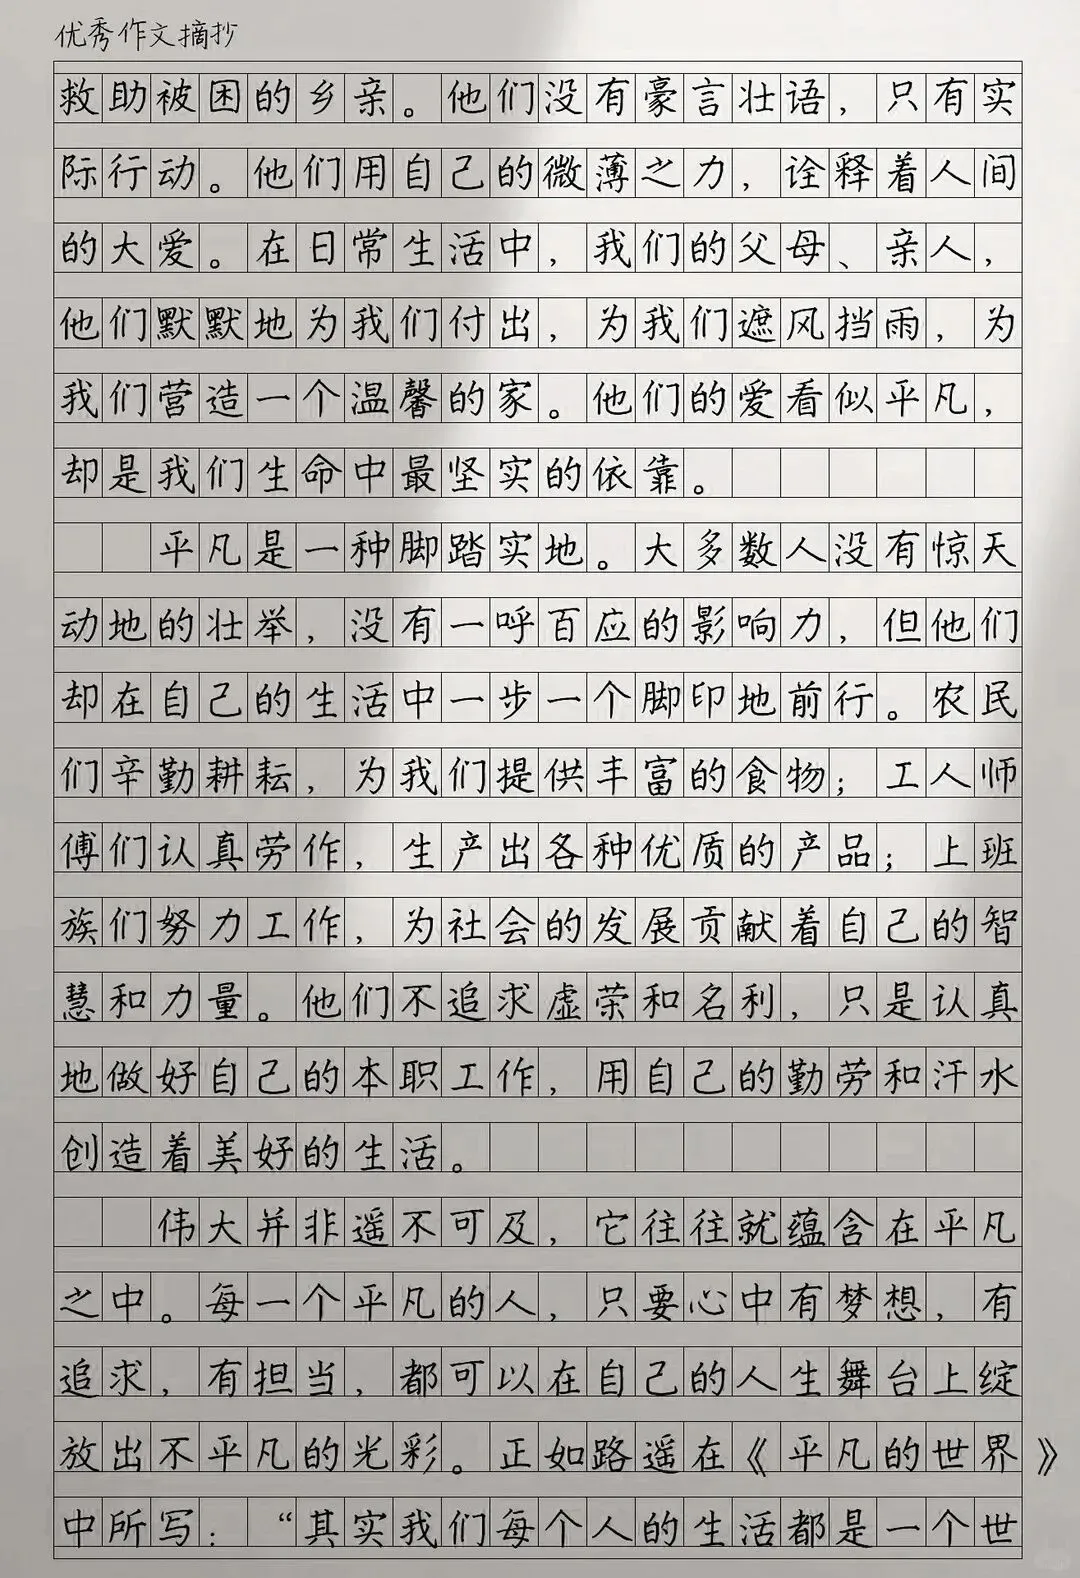 优秀作文摘抄
救助被困的乡亲。他们没有豪言壮语，只有实
际行动。他们用自己的微薄之力，诠释着人间
的大爱。在日常生活中，我们的父母、亲人，
他们默默地为我们付出，为我们遮风挡雨，为
我们营造一个温馨的家。他们的爱看似平凡，
却是我们生命中最坚实的依靠。
平凡是一种脚踏实地。大多数人没有惊天
动地的壮举，没有一呼百应的影响力，但他们
却在自己的生活中一步一个脚印地前行。农民
们辛勤耕耘，为我们提供丰富的食物；工人师
傅们认真劳作，生产出各种优质的产品；上班
族们努力工作，为社会的发展贡献着自己的智
慧和力量。他们不追求虚荣和名利，只是认真
地做好自己的本职工作，用自己的勤劳和汗水
创造着美好的生活。
伟大并非遥不可及，它往往就蕴含在平凡
之中。每一个平凡的人，只要心中有梦想，有
追求，有担当，都可以在自己的人生舞台上绽
放出不平凡的光彩。正如路遥在《平凡的世界》
中所写：“其实我们每个人的生活都是一个世